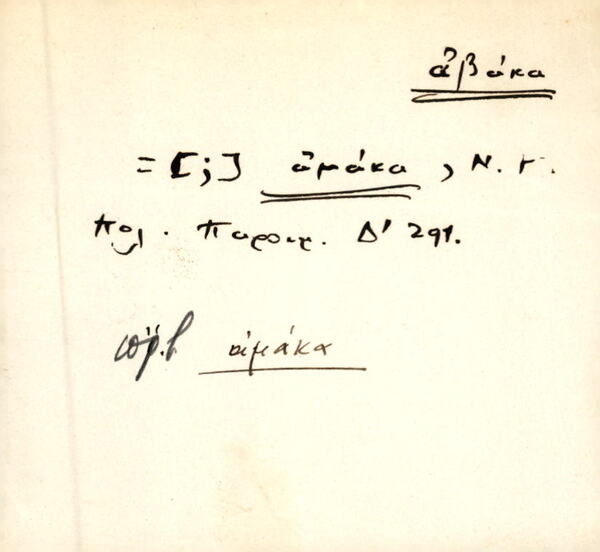 ἀβάκα
= [;] ἀμάκα, Ν. Γ.
Πολ. Παροιμ. Δ' 291.
ἀμάκα